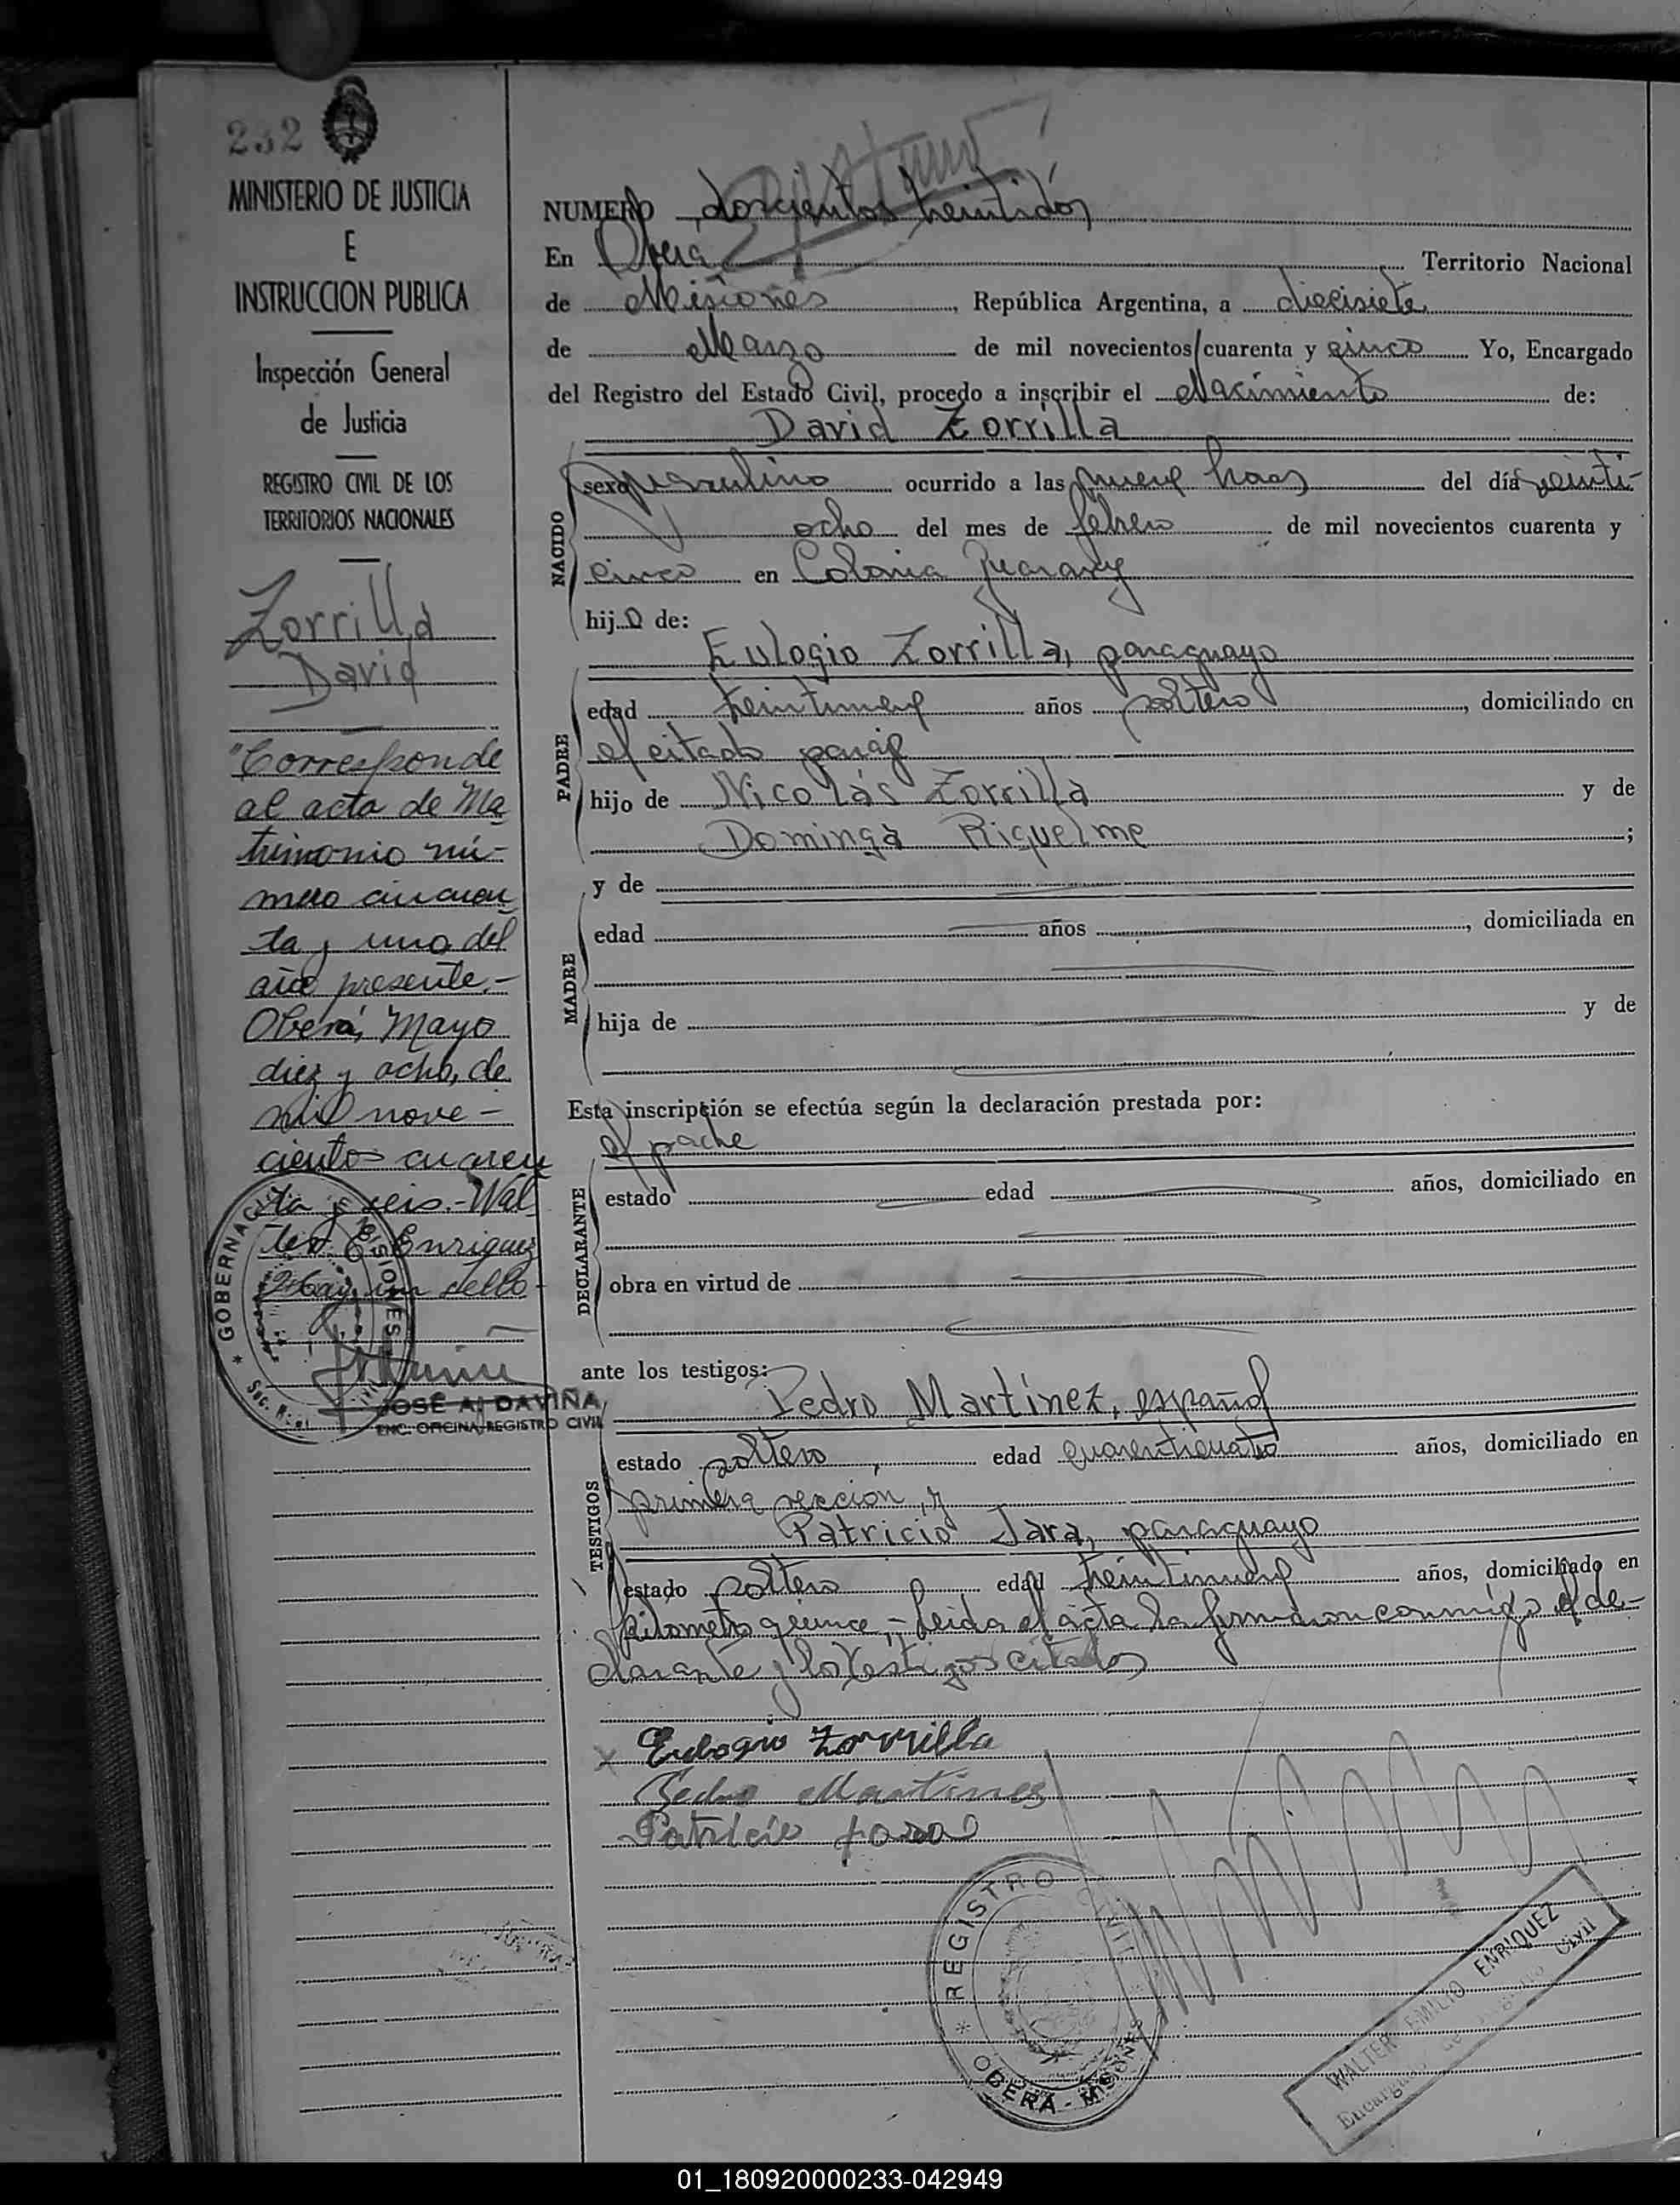 232
MINISTERIO DE JUSTICIA
E
INSTRUCCION PUBLICA
Inspección General
de Justicia
REGISTRO CIVIL DE LOS
TERRITORIOS NACIONALES
Zorrilla
David
"Corresponde
al acta de Ma
trimonio nú-
mero cincuen
ta y uno del
año presente.-
Oberá, Mayo
diez y ocho, de
mil nove-
cientos cuaren
ta y seis.- Wal
ter E. Enriquez
Hay un sello
GOBERNACION MISIONES
JOSÉ A. DAVIÑA
ENC. OFICINA REGISTRO CIVIL
NUMERO doscientos treintidós
En Oberá Territorio Nacional
de Misiones, República Argentina, a diecisiete
de Marzo de mil novecientos cuarenta y cinco Yo, Encargado
del Registro del Estado Civil, procedo a inscribir el Nacimiento de:
David Zorrilla
NACIDO
sexo masculino ocurrido a las nueve horas del día veinti-
ocho del mes de febrero de mil novecientos cuarenta y
cinco en Colonia Guarany
hijo de:
Eulogio Zorrilla, paraguayo
PADRE
edad treintinueve años soltero, domiciliado en
el citado paraje
hijo de Nicolás Zorrilla y de
Dominga Riquelme;
y de
MADRE
edad años, domiciliada en
hija de y de
Esta inscripción se efectúa según la declaración prestada por:
el padre
DECLARANTE
estado edad años, domiciliado en
obra en virtud de
ante los testigos:
Pedro Martinez, español
TESTIGOS
estado soltero, edad cuarenticuatro años, domiciliado en
primera seccion, y
Patricio Jara, paraguayo
estado soltero edad treintinueve años, domiciliado en
kilometro quince,- Leida el acta la firmaron conmigo el de-
clarante y los testigos citados
x Eulogio Zorrilla
Pedro Martinez
Patricio Jara
REGISTRO CIVIL
OBERÁ - MISIONES
WALTER EMILIO ENRIQUEZ
Encargado del Registro Civil
01_180920000233-042949